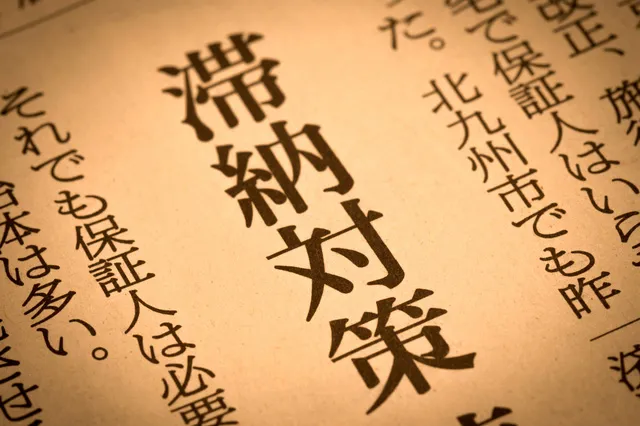 改正、施
宅で保証人はい
た。北九州市でも昨
滞納対策
それでも保証人は必要
体は多い。
させ